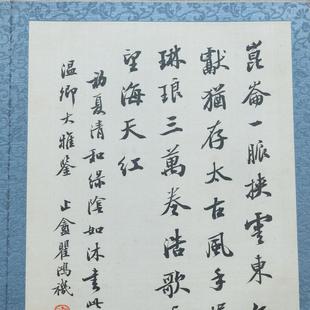 崑崙一脈挾雲東
獻猶存太古風手
琳琅三萬卷浩歌
望海天紅
初夏清和綠陰如沐書此
温卿大雅鑒 止盦瞿鴻禨